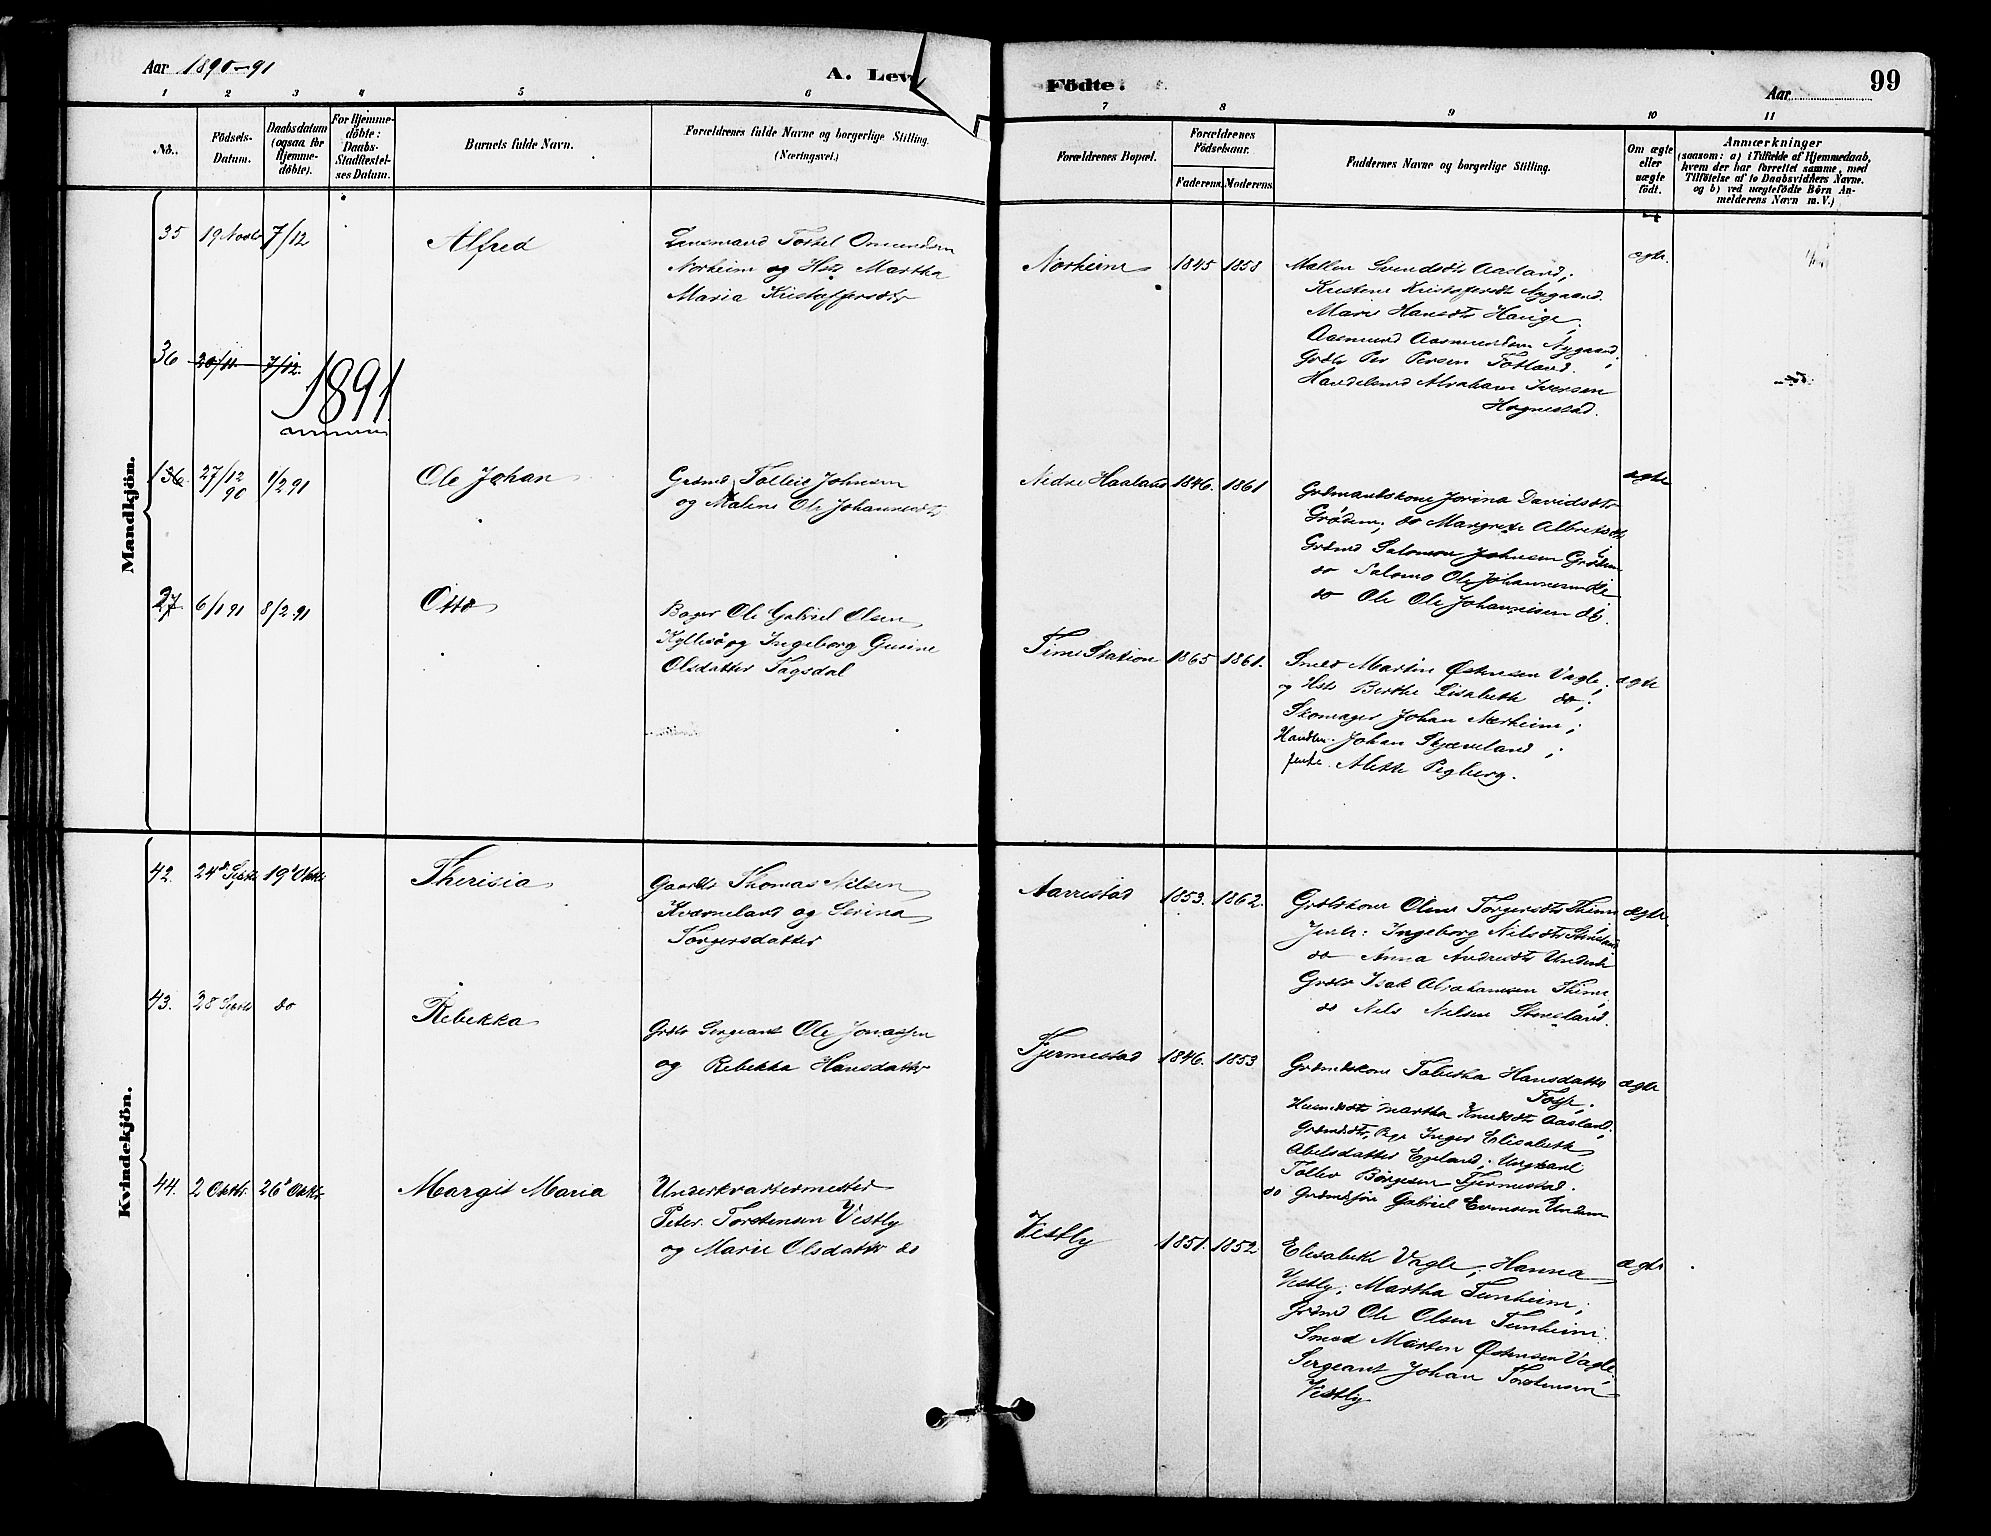 Aar 1890-91
A. Lev
Födte.
Aar
99
1 2 3 4 5 6 7 8 9 10 11
No.
Födsels-
Datum.
Daabsdatum
(ogsaa for
Hjemme-
døbte).
For Hjemme-
døbte:
Daabs-
Stadfestel-
ses Datum.
Barnets fulde Navn.
Forældrenes fulde Navne og borgerlige Stilling.
(Næringsvei.)
Forældrenes Bopæl.
Forældrenes
Födselsaar.
Faderens. Moderens.
Faddernes Navne og borgerlige Stilling.
Om ægte
eller
uægte
født.
Anmærkninger
(saasom: a) i Tilfælde af Hjemmedaab,
hvem der har forrettet samme, med
Tilføielse af to Daabsvidners Navne.
og b) ved uægtefödte Börn An-
melderens Navn m.V.)
Mandkjön.
35 19 Novbr 7/12 Alfred
Lensmand Torkel Omundsen
Norheim og Hst Martha
Maria Kristoffersdtr
Norheim 1845 1858
Malene Svendsdtr Aasland;
Kristene Kristofersdtr Nygaard.
Marie Hansdtr Hauge;
Aasmund Aasmundsen Nygaard;
Grdbr Per Persen Fotland.
Handelsmd Abraham Iversen
Hognestad.
ægte.
36 20/11 7/12.
1891
136 27/12 90 1/2 91 Ole Johan
Grdmd Tolleiv Johnsen
og Malene Ole Johannesdtr
Nedre Haaland 1846. 1861
Grdmandskone Jorina Davidsdtr
Grødem, do Margrete Albretsdtr
Grdmd Salomon Johnsen Grødem
do Salomo Ole Johannesen
do Ole Ole Johannesen do.
ægte
27 6/1 91 8/2 91 Otto
Bager Ole Gabriel Olsen
Kyllesø og Ingeborg Gurine
Olsdatter Tagsdal
Time Station 1865 1861.
Smed Martin Østensen Vagle;
og Hst Berthe Elisabeth do;
Skomager Johan Nærheim;
Handlm. Johan Skjæveland;
pike. Alette Regberg.
ægte
Kvindekjön.
42. 24de Septb 19de Oktbr Therisia
Gaardbr Thomas Nilsen
Kværneland og Serina
Torgersdatter
Aarrestad 1853. 1862.
Grdbrkone Olene Torgersdtr Thime
Jente: Ingeborg Nilsdtr Steneland
do Anna Andreasdtr Undem
Grdbr Isak Abrahamsen Thime
do Nils Nilsen Steneland.
ægte
43. 28 Septb do Rebekka
Grdbr Sergeant Ole Jonassen
og Rebekka Hansdatter
Fjermestad 1846. 1853
Grdmdskone Tabitha Hansdatter
Fosse;
Husmdsdtr Martha Knudsdtr Aasland;
Grdmdsdtr, Pige Inger Elisabeth
Abelsdatter Egeland; Ungkarl
Tollev Børgesen Fjermestad.
do Grdmdssøn Gabriel Evensen Undem
ægte
44. 2 Oktbr. 26de Oktbr Margit Maria
Underkvartermester
Peter Torstensen Vestly
og Marie Olsdatter do
Vestly 1851. 1852
Elisabeth Vagle; Hanna
Vestly; Martha Tunheim;
Grdmd Ole Olsen Tunheim.
Smed Martin Østensen Vagle;
Sergeant Johan Torstensen
Vestly
ægte